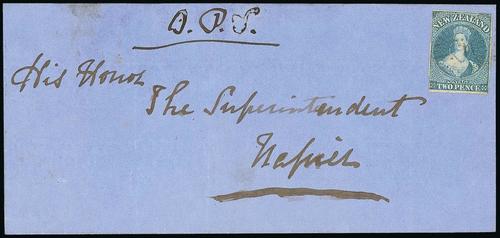 O. P. S.
NEW ZEALAND
POSTAGE
TWO PENCE
His Honor
The Superintendent
Napier